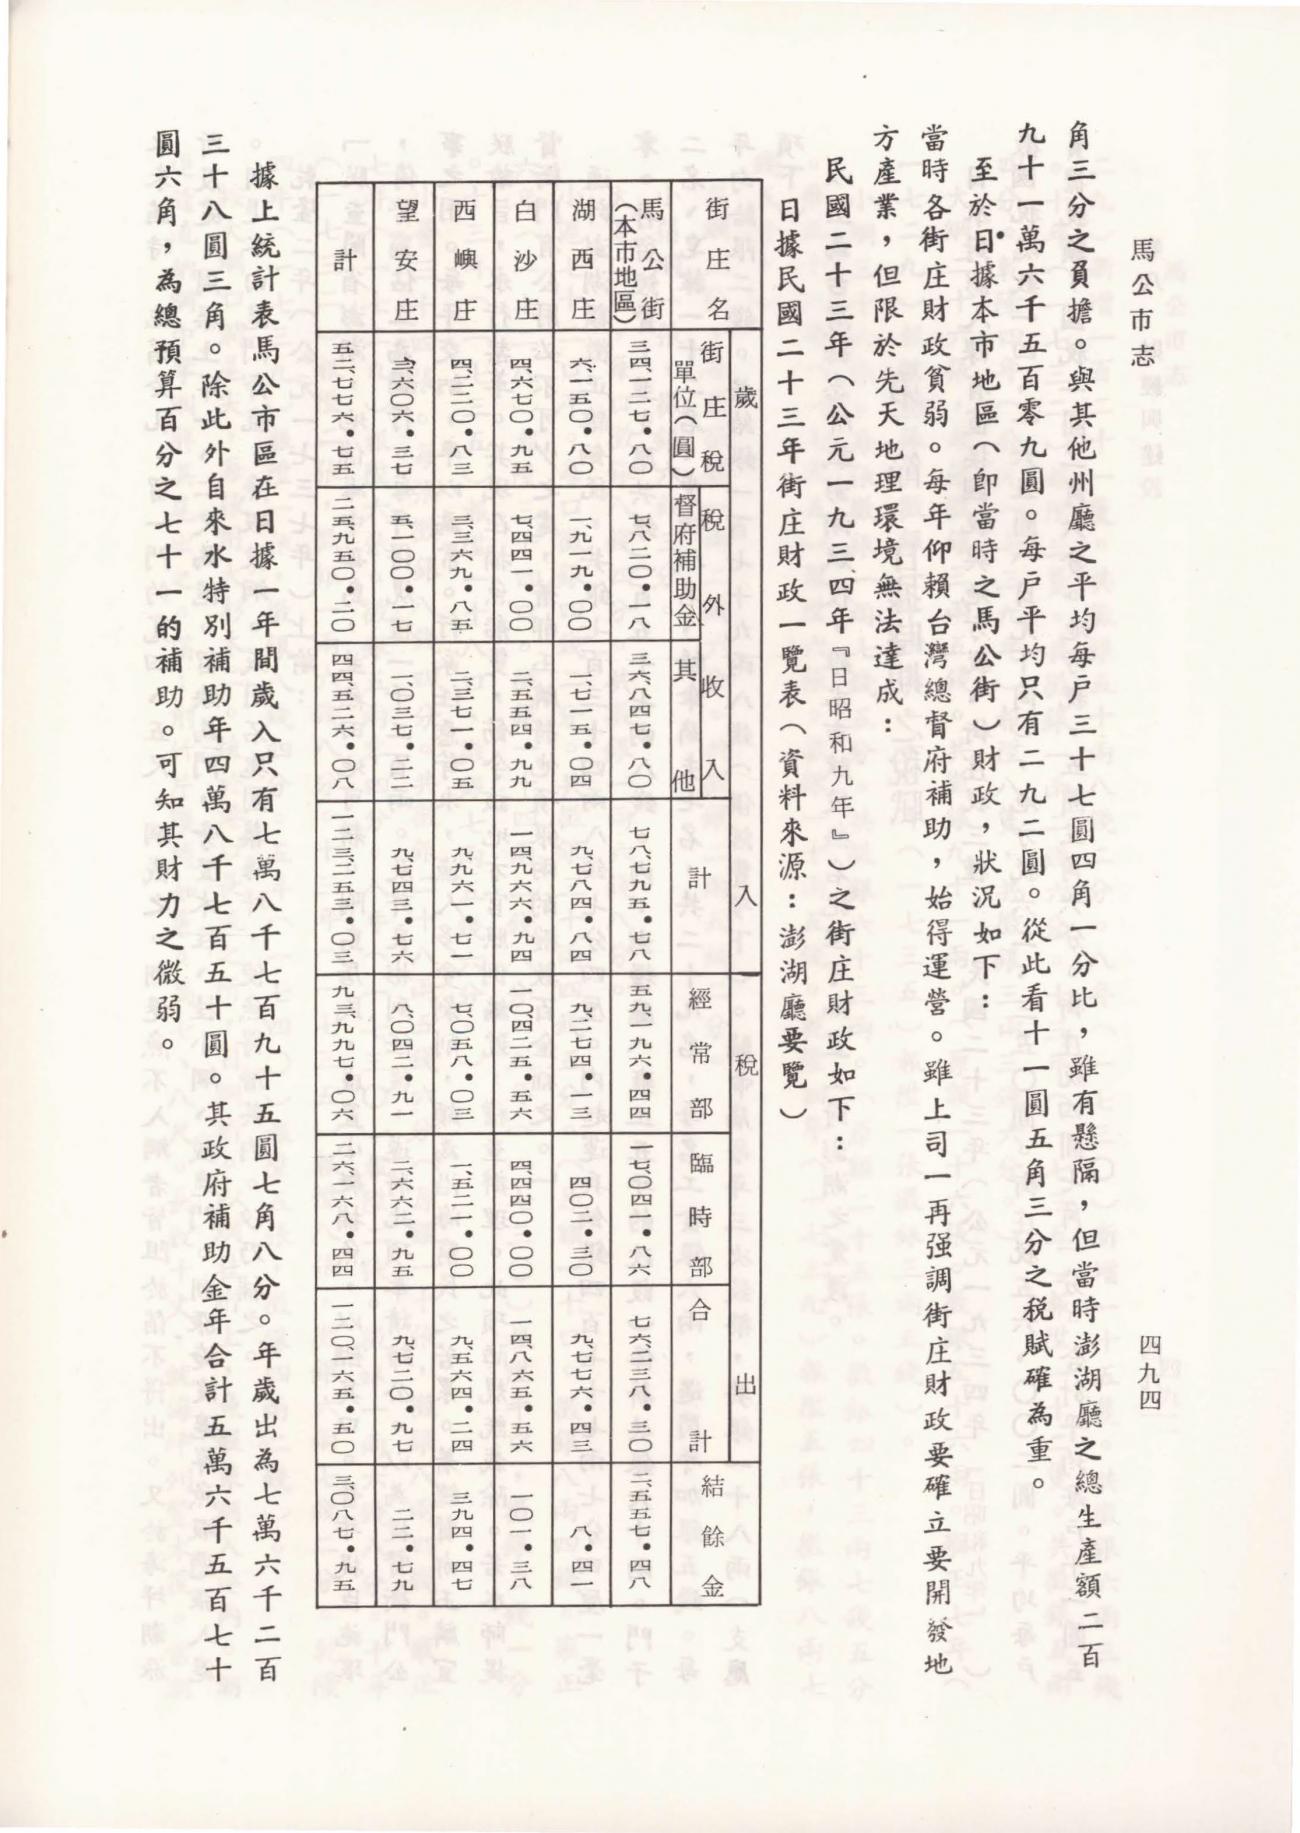 馬公市志
四九四
角三分之負擔。與其他州廳之平均每戶三十七圓四角一分比，雖有懸隔，但當時澎湖廳之總生產額二百
九十一萬六千五百零九圓。每戶平均只有二九二圓。從此看十一圓五角三分之稅賦確為重。
至於日據本市地區（即當時之馬公街）財政，狀況如下：
當時各街庄財政貧弱。每年仰賴台灣總督府補助，始得運營。雖上司一再强調街庄財政要確立要開發地
方產業，但限於先天地理環境無法達成：
民國二十三年（公元一九三四年『日昭和九年』）之街庄財政如下：
日據民國二十三年街庄財政一覽表（資料來源：澎湖廳要覽）
街庄名
歲入
稅出
結餘金
街庄稅
單位（圓）
稅外收入
督府補助金
其他
計
經常部
臨時部
合計
馬公街（本市地區）
三四、一二七•八〇
七、八二〇•一八
三六、八四七•八〇
七八、七九五•七八
五九、一九六•四四
一七、〇四一•八六
七六、二三八•三〇
二、五五七•四八
湖西庄
六、一五〇•八〇
一、九一九•〇〇
一、七一五•〇四
九、七八四•八四
九、二七四•一三
四〇二•三〇
九、七七六•四三
八•四一
白沙庄
四、六七〇•九五
七、四四一•〇〇
二、五五四•九九
一四、九六六•九四
一〇、四二五•五六
四、四四〇•〇〇
一四、八六五•五六
一〇一•三八
西嶼庄
四、二二〇•八三
三、三六九•八五
二、三七一•〇五
九、九六一•七一
七、〇五八•〇三
一、五二一•〇〇
九、五六四•二四
三九四•四七
望安庄
三、六〇六•三七
五、一〇〇•一七
一、〇三七•二二
九、七四三•七六
八、〇四二•九一
二、六六二•九五
九、七二〇•九七
二二•七九
計
五二、七七六•七五
二五、九五〇•二〇
四四、五二六•〇八
一二三、二五三•〇三
九三、九九七•〇六
二六、一六八•四四
一二〇、一六五•五〇
三、〇八七•九五
據上統計表馬公市區在日據一年間歲入只有七萬八千七百九十五圓七角八分。年歲出為七萬六千二百
三十八圓三角。除此外自來水特別補助年四萬八千七百五十圓。其政府補助金年合計五萬六千五百七十
圓六角，為總預算百分之七十一的補助。可知其財力之微弱。